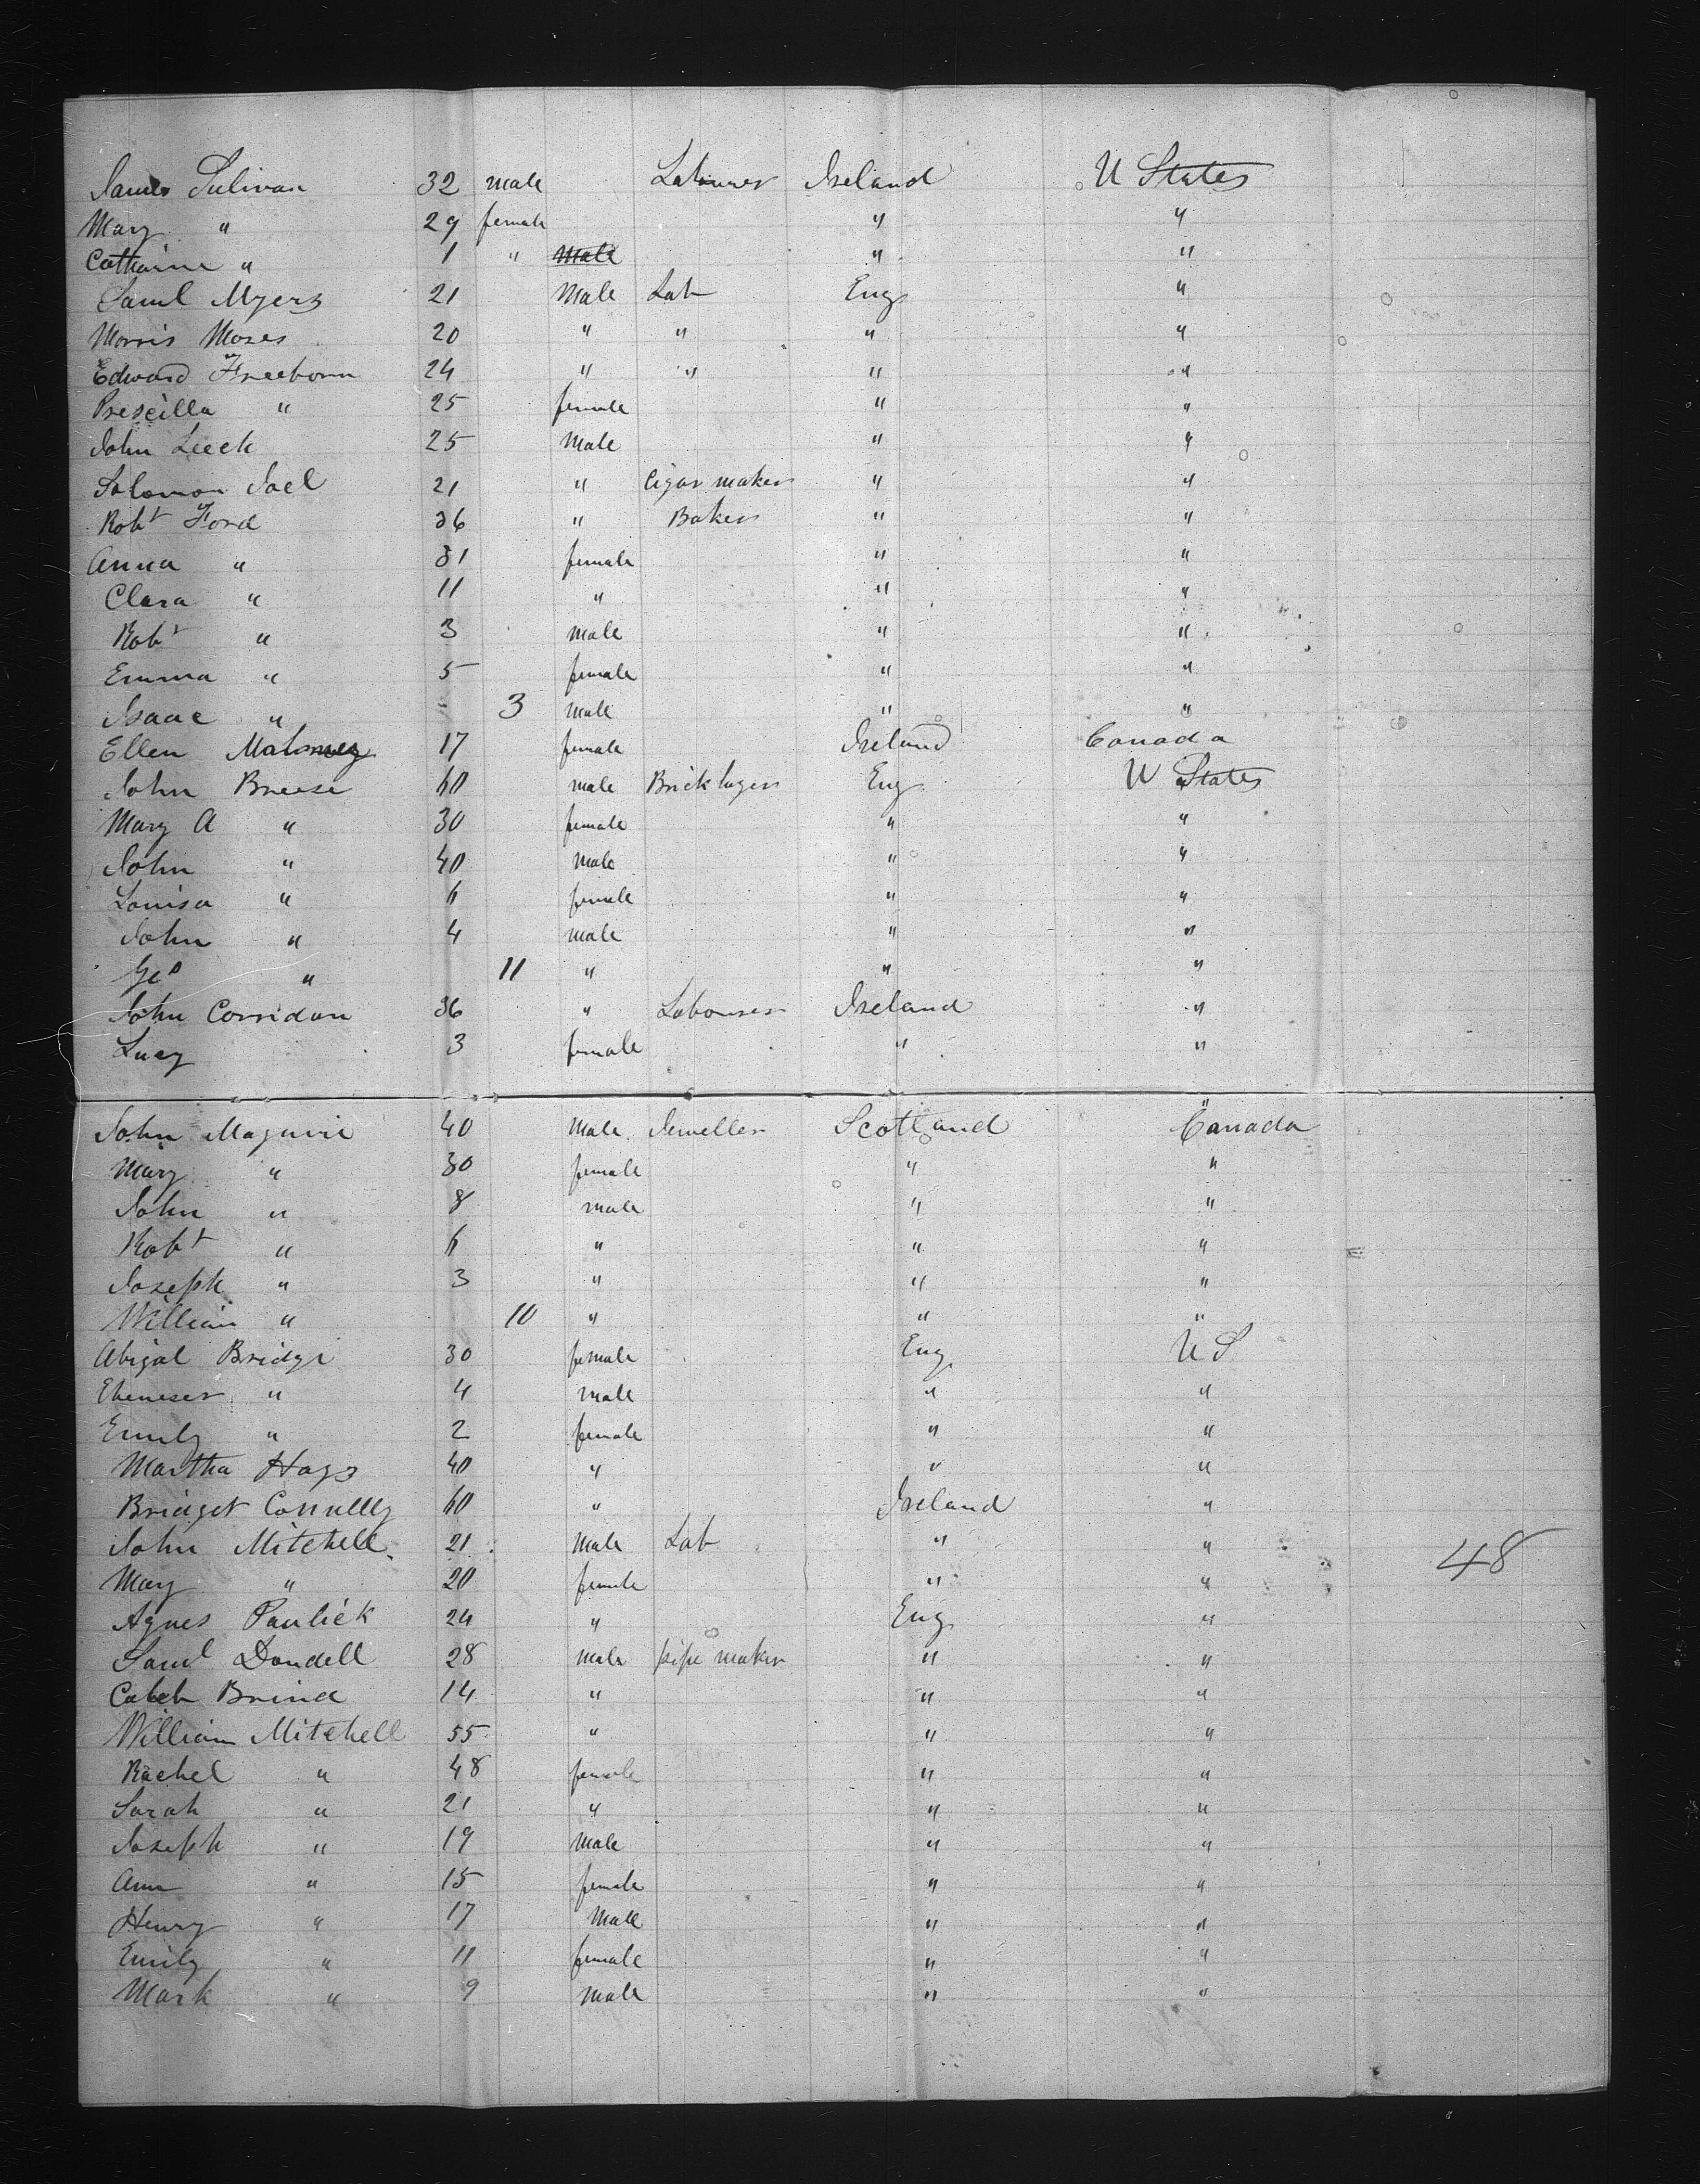 James Sulivan 32 male Labourer Ireland U States
Mary " 29 female " "
Catharine " 1 " male " "
Saml Myers 21 Male Lab Eng "
Morris Moses 20 " " " "
Edward Freeborn 24 " " " "
Prescilla " 25 female " "
John Leek 25 Male " "
Solomon Joel 21 " Cigar maker " "
Robt Ford 36 " Baker " "
Anna " 31 female " "
Clara " 11 " " "
Robt " 3 male " "
Emma " 5 female " "
Isaac " 3 male " "
Ellen Maloney 17 female Ireland Canada
John Breese 60 male Bricklayer Eng U States
Mary A " 30 female " "
John " 40 male " "
Louisa " 6 female " "
John " 4 male " "
Geo " 11 " " "
John Corridan 36 " Labourer Ireland "
Lucy 3 female " "
John Maguire 40 Male Jeweller Scotland " Canada
Mary " 30 female " "
John " 8 male " "
Robt " 6 " " "
Joseph " 3 " " "
William " 10 " " "
Abigal Bridge 30 female Eng U S
Ebeneser " 4 male " "
Emily " 2 female " "
Martha Hays 40 " " "
Bridget Connelly 60 " Ireland "
John Mitchell 21 Male Lab " " 48
Mary " 20 female " "
Agnes Paulick 24 " Eng "
Saml Dondell 28 male pipe maker " "
Caleb Brind 14 " " "
William Mitchell 55 " " "
Rachel " 48 female " "
Sarah " 21 " " "
Joseph " 19 Male " "
Ann " 15 female " "
Henry " 17 Male " "
Emily " 11 female " "
Mark " 9 male " "